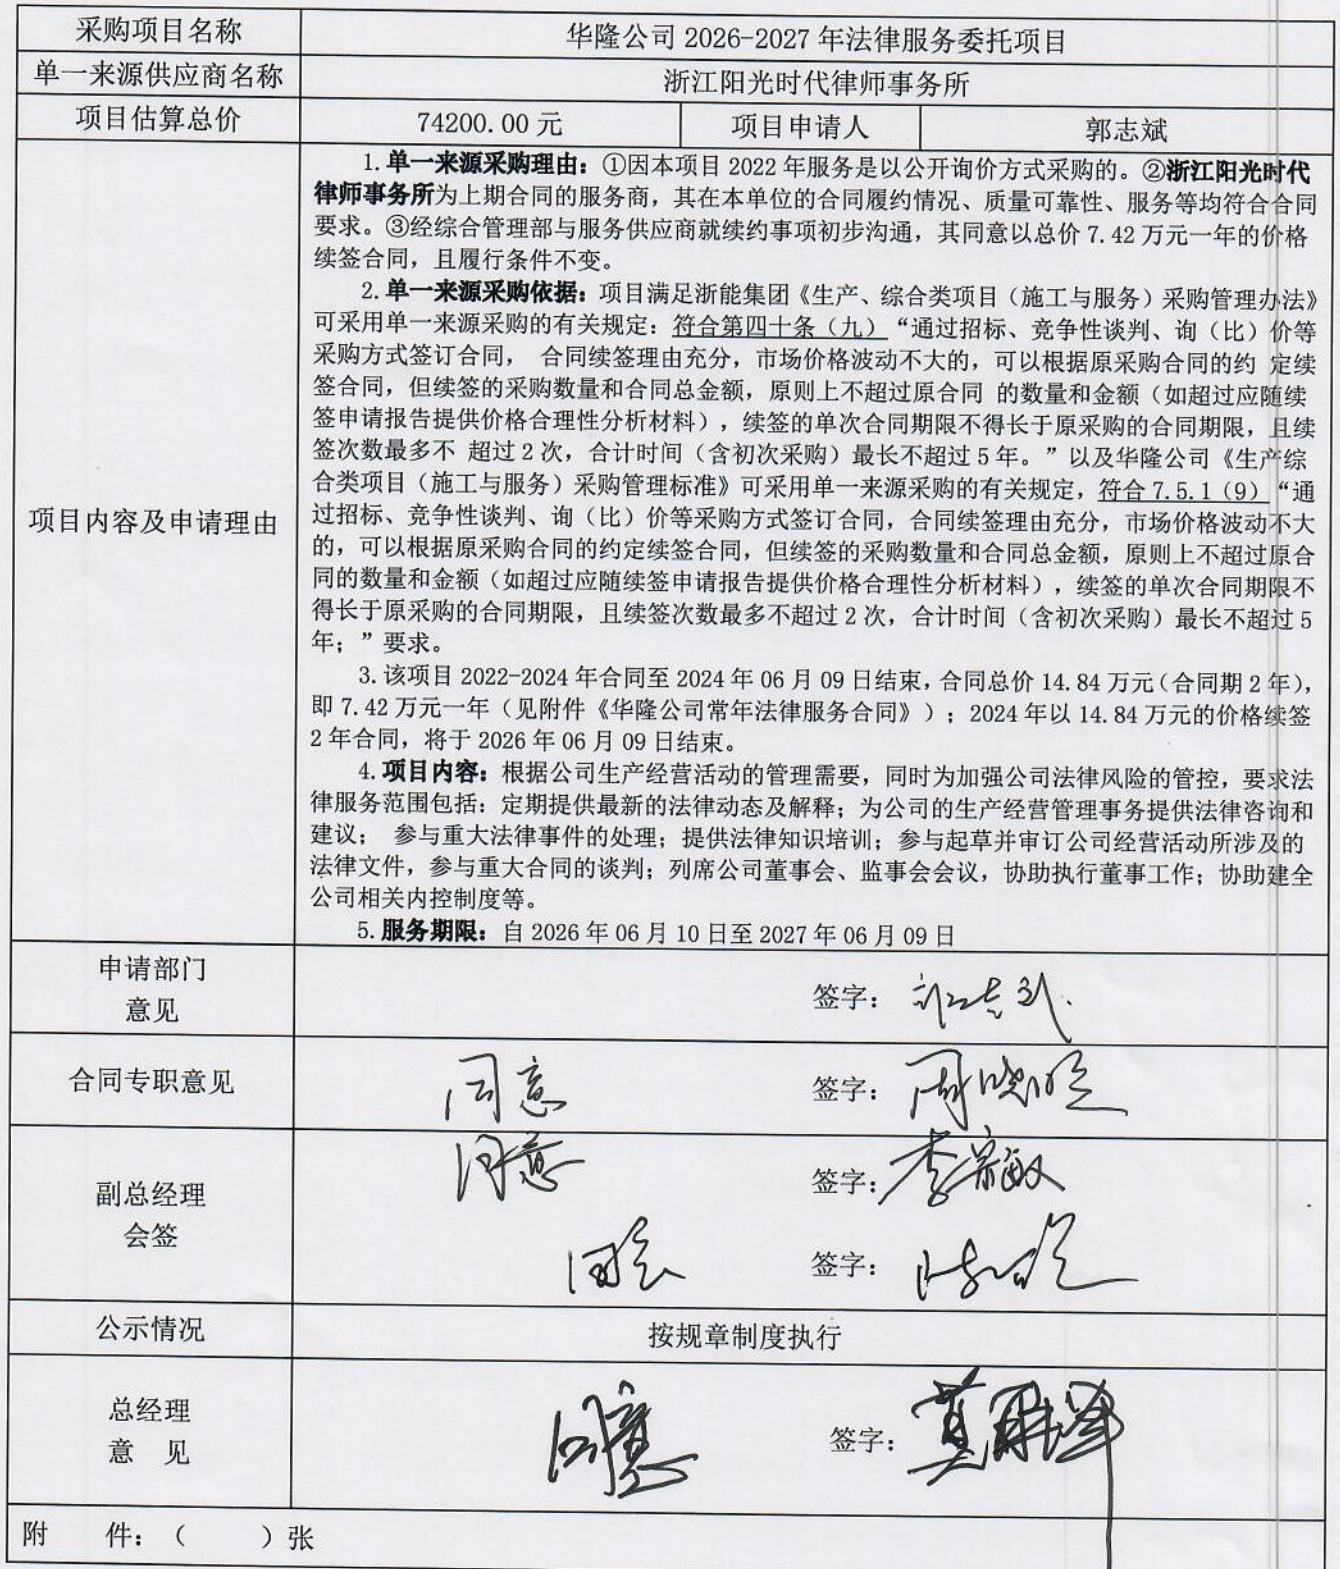 采购项目名称 华隆公司 2026-2027 年法律服务委托项目
单一来源供应商名称 浙江阳光时代律师事务所
项目估算总价 74200.00 元 项目申请人 郭志斌
项目内容及申请理由
1.单一来源采购理由：①因本项目 2022 年服务是以公开询价方式采购的。②浙江阳光时代
律师事务所为上期合同的服务商，其在本单位的合同履约情况、质量可靠性、服务等均符合合同
要求。③经综合管理部与服务供应商就续约事项初步沟通，其同意以总价 7.42 万元一年的价格
续签合同，且履行条件不变。
2.单一来源采购依据：项目满足浙能集团《生产、综合类项目（施工与服务）采购管理办法》
可采用单一来源采购的有关规定：符合第四十条（九）“通过招标、竞争性谈判、询（比）价等
采购方式签订合同， 合同续签理由充分，市场价格波动不大的，可以根据原采购合同的约 定续
签合同，但续签的采购数量和合同总金额，原则上不超过原合同 的数量和金额（如超过应随续
签申请报告提供价格合理性分析材料），续签的单次合同期限不得长于原采购的合同期限，且续
签次数最多不 超过 2 次，合计时间（含初次采购）最长不超过 5 年。”以及华隆公司《生产综
合类项目（施工与服务）采购管理标准》可采用单一来源采购的有关规定，符合 7.5.1（9）“通
过招标、竞争性谈判、询（比）价等采购方式签订合同，合同续签理由充分，市场价格波动不大
的，可以根据原采购合同的约定续签合同，但续签的采购数量和合同总金额，原则上不超过原合
同的数量和金额（如超过应随续签申请报告提供价格合理性分析材料），续签的单次合同期限不
得长于原采购的合同期限，且续签次数最多不超过 2 次，合计时间（含初次采购）最长不超过 5
年；”要求。
3.该项目 2022-2024 年合同至 2024 年 06 月 09 日结束，合同总价 14.84 万元（合同期 2 年），
即 7.42 万元一年（见附件《华隆公司常年法律服务合同》）；2024 年以 14.84 万元的价格续签
2 年合同，将于 2026 年 06 月 09 日结束。
4.项目内容：根据公司生产经营活动的管理需要，同时为加强公司法律风险的管控，要求法
律服务范围包括：定期提供最新的法律动态及解释；为公司的生产经营管理事务提供法律咨询和
建议； 参与重大法律事件的处理；提供法律知识培训；参与起草并审订公司经营活动所涉及的
法律文件，参与重大合同的谈判；列席公司董事会、监事会会议，协助执行董事工作；协助建全
公司相关内控制度等。
5.服务期限：自 2026 年 06 月 10 日至 2027 年 06 月 09 日
申请部门
意见
签字：
合同专职意见 同意 签字：周晓明
副总经理
会签
同意 签字：李宗敏
同意 签字：
公示情况 按规章制度执行
总经理
意 见
同意 签字：
附 件：（ ）张